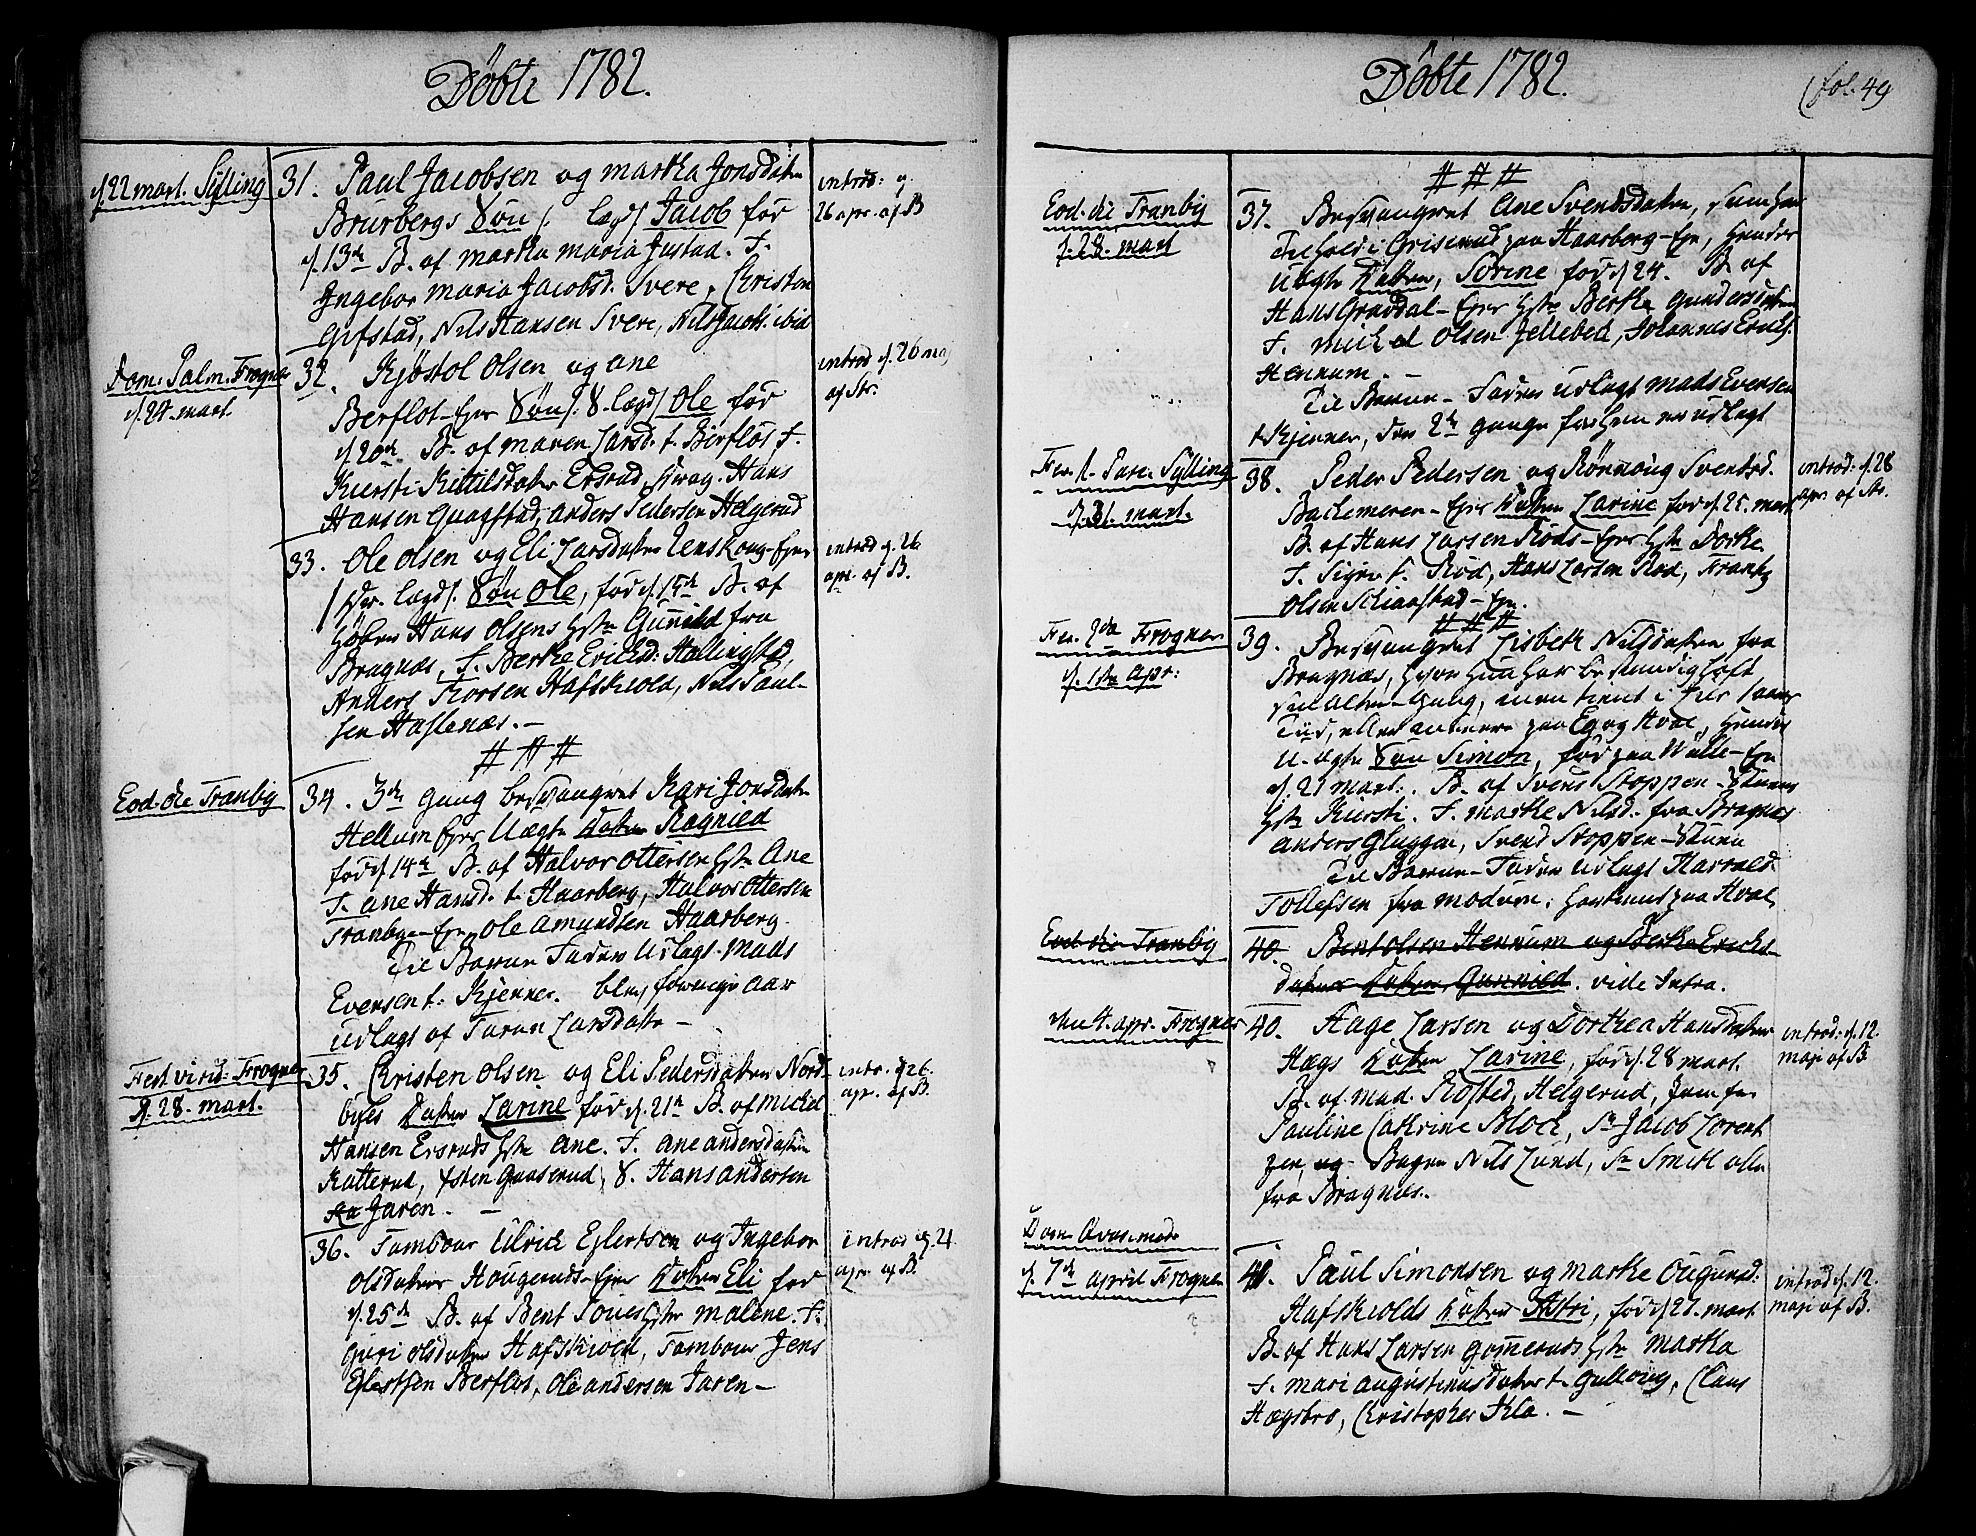 Döbte 1782.
d. 22 mart. Sylling
31. Paul Jacobsen og Martha Jonsdatter
Brurbergs Sön /: lagd/ Jacob föd
d. 13de B. af Martha Maria Justad. F.
Ingebor Maria Jacobsd. Svere, Christen
Gifstad, Nils Hansen Svere, Nils Jacobs. ibid
introd: d.
26 apr. af B
Dom. Palm. Frogner
d. 24 mart.
32. Kjöstol Olsen og Ane
Berflot-Ejer Sön /: S. lægd/ Ole föd
d. 20de B. af Maren Larsd. t. Berflot F.
Kiersti Kittilsdatter Ersrud, Hans
Hansen Anders Pedersen Helgerud
introd d. 26 maj
af Str.
33. Ole Olsen og Eli Larsdatter Enskoug-Ejer
lægd/. Sön Ole, föd d. 15de B. af
Hans Olsens Hstr Gunild fra
Bragnæs, F. Berthe Ericksd: Hallingstad,
Anders Thorsen Hafskiold, Nils Paul-
sen Haslenæs. -
introd d. 26
apr. af B.
# # #
Eod. die Tranbÿ
34. 3de gang besvangret Kari Jonsdatter
Hellum Ejer Uægte Datter Ragnild
föd d. 14de B. af Halvor Ottersen Hstr Ane
F. Ane Hansd. t. Haarberg, Halvor Ottersen
Tranbye-Ejer, Ole Amundsen Haarberg.
Til Barne-Fader Udlagt Mads
Evensen t. Kjenner. blev forrige Aar
Udlagt af Taran Larsdatter -
Fest virid: Frogner
d. 28. mart.
35. Christen Olsen og Eli Pedersdatter Nord-
byes Datter Larine föd d. 21de B. af Michel
Hansen Ersruds Hstr Ane. F. Ane Andersdatter
Katterud, Östen Gaaserud, S. Hans Andersen
Jaren. -
intr. d 26.
apr. af B.
36. Tambour Ulrick Eÿlertsen og Ingebor
Olsdatter Hougerud-Ejer Datter Eli föd
d. 25de B. af Bent Hstr Malene. F.
Guri Olsdatter Hafskiold, Tambour Jens
Eÿlertsen Berflot, Ole Andersen Jaren -
introd d. 21.
apr. af B.
Döbte 1782.
(fol. 49
# # #
Eod. die Tranbÿ
d. 28. mart
37. Besvangret Ane Svendsdatter, som har
Tilhold i Griserud paa Haarberg-Eje, hendes
Uægte Datter, Sörine föd d 24. B. af
Hans Gravdal-Ejer Hstr Berthe Gundersdatter
F. Michel Olsen Jellebek, Johannes Erichs.
Hennum. -
Til Barne-Fader udlagt Mads Evensen
t. Kjenner, den 2de gang for hun er udlagt
Fer. 1. Pasc. Sylling
d. 31. mart.
38. Peder Pedersen og Rönnoug Svendsd.
Datter Larine föd d. 25. mart
B. af Hans Larsen Röds-Ejer Hstr Dorthe.
F. Sigri t. Röd, Hans Larsen Röd, Frantz
Olsen Schiaafstad-Eje.
introd: d. 28
apr. af Str.
# # #
Fer. 2da Frogner
d. 1ste Apr:
39. Besvangret Lisbeth Nilsdatter fra
Bragnæs, hvor hun har bestandig holt
sig til Alters-Gang, men tient i
Tiid, paa Eg og Hval, hendes
U-ægte Sön Simon, föd paa Wille-Eje
d. 21 mart. B. af Svens Stoppen-
Hstr Kiersti. F. Marthe Nilsd. fra Bragnæs
Anders Gluggen, Svend Stoppen-
Til Barne-Fader Udlagt Harrald
Tollefsen fra Modum, hos paa Hval
Eod. die Tranbÿ
40. Bent Olsen Hennum og Berthe Ericks-
datter Datter Gunnild. vide Intra.
den 4. apr. Frogner
40. Aage Larsen og Dorthea Hansdatter
Hægs Datter Larine, föd d. 28 mart.
B. af Mad. Rosted, Helgerud, Jomfr.
Pauline Cathrine Block, Sr Jacob Lorent
zen, og Nils Lund, Sr Smitt alle
fra Bragnæs.
introd: d. 12.
maji af B.
Dom. Qvasimod.
d. 7de april Frogner
41. Paul Simonsen og Marthe Ougunsd:
Hafskiolds Datter Astri, föd d 27. mart
B. af Hans Larsen Gomeruds Hstr Martha
F. Mari Augustinusdatter t. Gulloug, Claus
Hægsbro, Christopher Klo. -
introd d. 12.
maji af B.